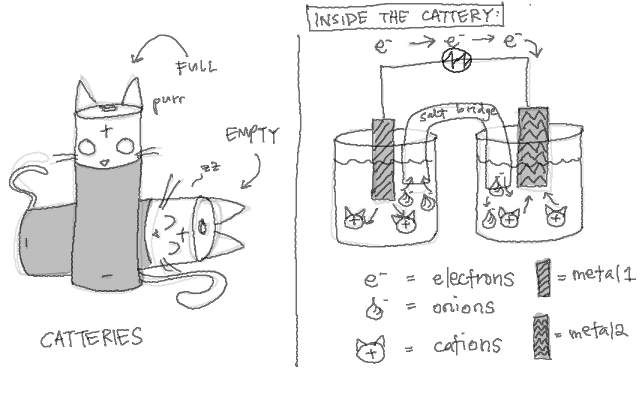 FULL
purr
EMPTY
zz
CATTERIES
INSIDE THE CATTERY:
e⁻ → e⁻ → e⁻
salt bridge
e⁻ = electrons
= onions
= cations
= metal 1
= metal 2